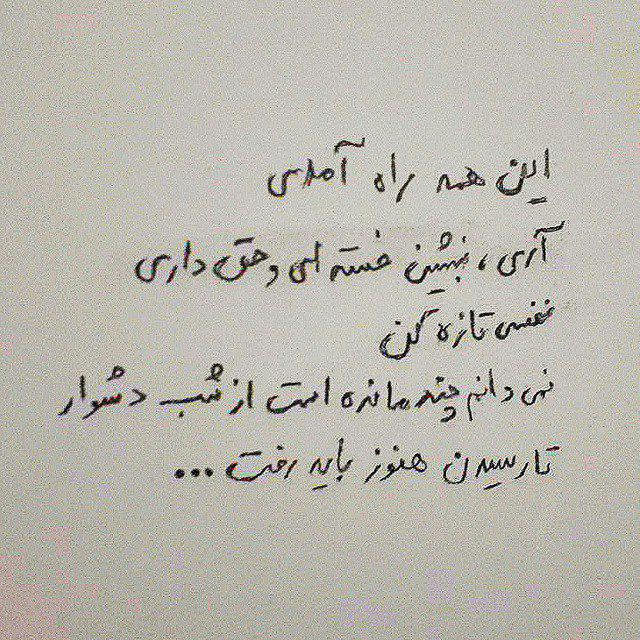 این همه راه آمدی
آری، بنشین خسته ای و حق داری
نفسی تازه کن
نمی دانم چند مانده است از شب دشوار
تا رسیدن هنوز باید رفت...